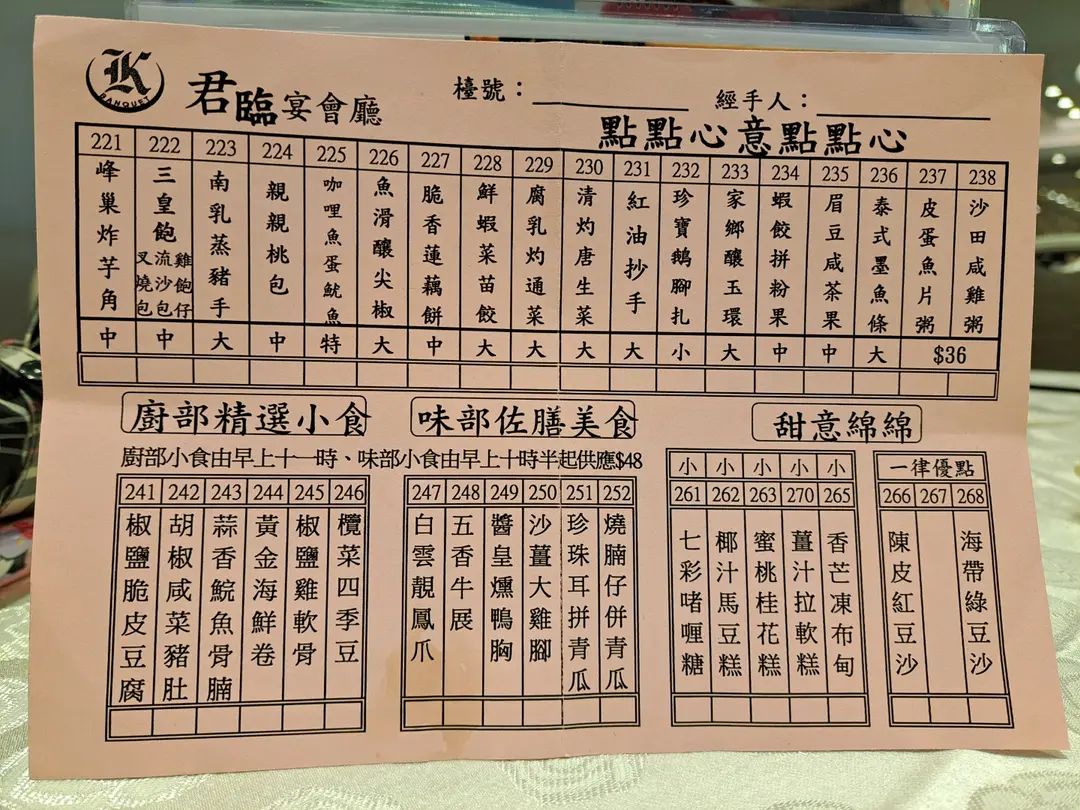 K
BANQUET
君臨宴會廳
檯號：
經手人：
點點心意點點心
221 222 223 224 225 226 227 228 229 230 231 232 233 234 235 236 237 238
峰巢炸芋角
三皇飽
叉燒包
流沙包
雞飽仔
南乳蒸豬手
親親桃包
咖哩魚蛋魷魚
魚滑釀尖椒
脆香蓮藕餅
鮮蝦菜苗餃
腐乳灼通菜
清灼唐生菜
紅油抄手
珍寶鵝腳扎
家鄉釀玉環
蝦餃拼粉果
眉豆咸茶果
泰式墨魚條
皮蛋魚片粥
沙田咸雞粥
中 中 大 中 特 大 中 大 大 大 大 小 大 中 中 大 $36
廚部精選小食
味部佐膳美食
甜意綿綿
廚部小食由早上十一時、味部小食由早上十時半起供應$48
241 242 243 244 245 246
椒鹽脆皮豆腐
胡椒咸菜豬肚
蒜香鯇魚骨腩
黃金海鮮卷
椒鹽雞軟骨
欖菜四季豆
247 248 249 250 251 252
白雲靚鳳爪
五香牛展
醬皇燻鴨胸
沙薑大雞腳
珍珠耳拼青瓜
燒腩仔併青瓜
小 小 小 小 小
261 262 263 270 265
七彩啫喱糖
椰汁馬豆糕
蜜桃桂花糕
薑汁拉軟糕
香芒凍布甸
一律優點
266 267 268
陳皮紅豆沙
海帶綠豆沙